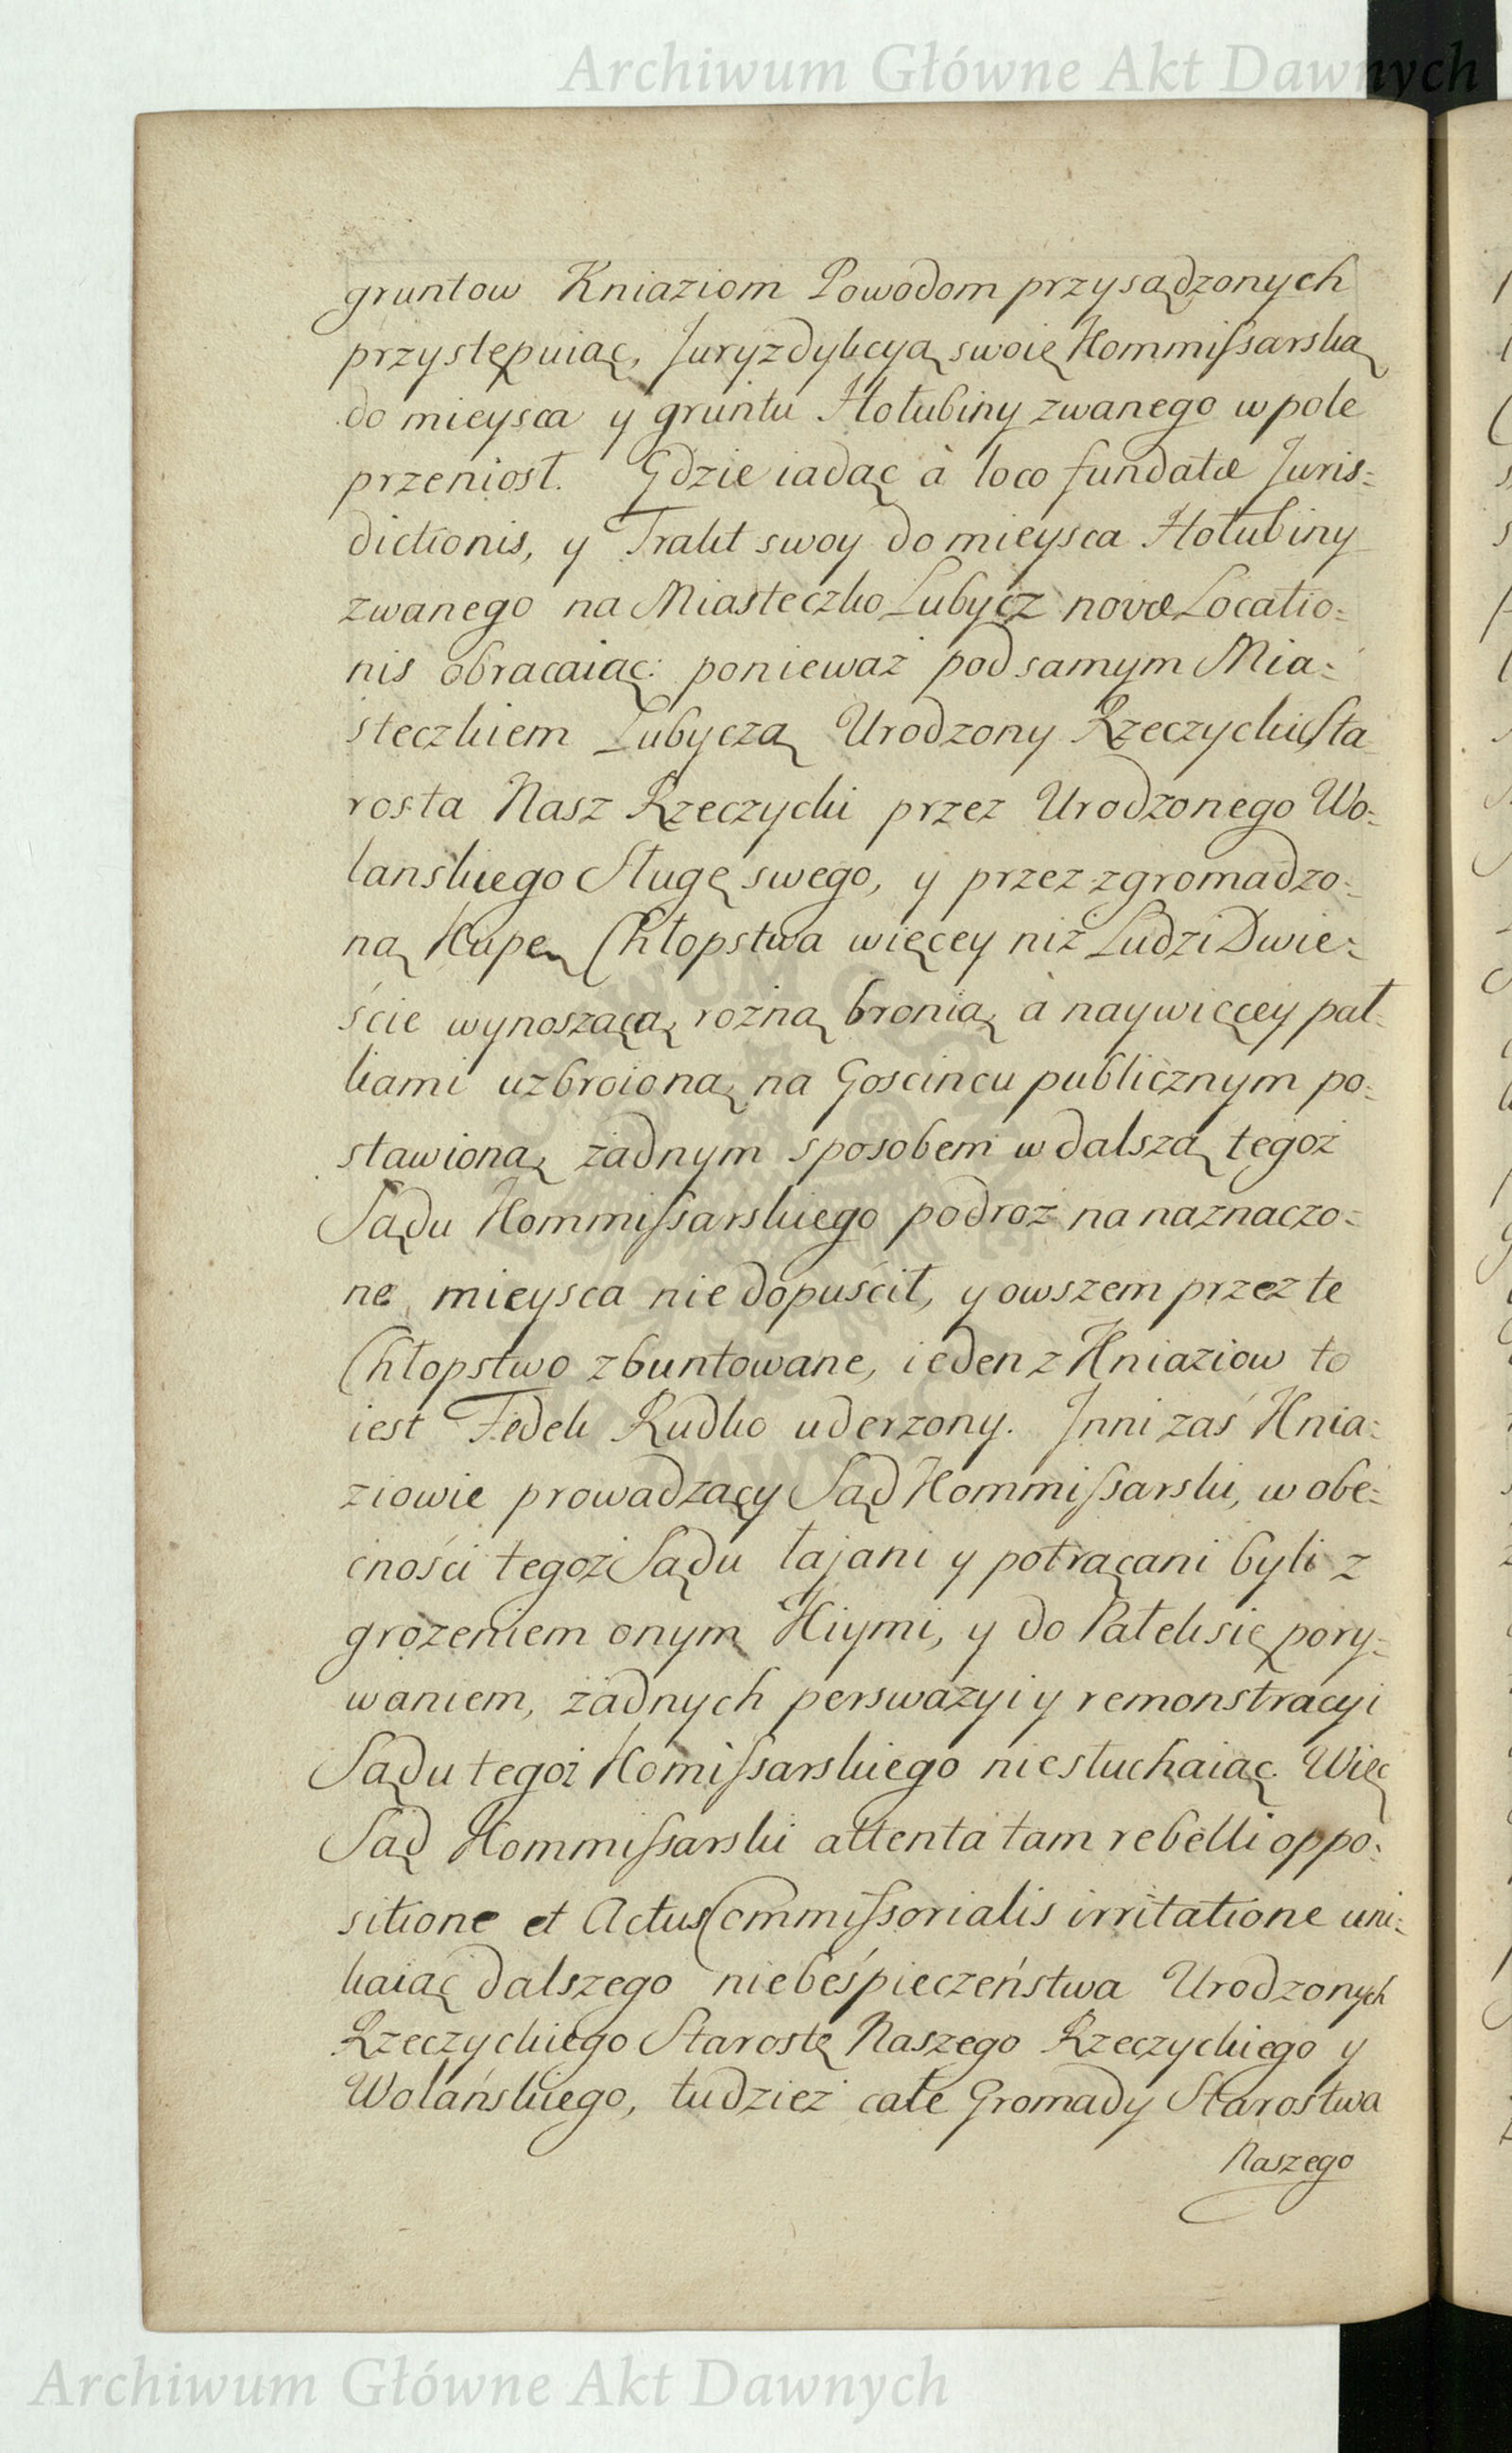 Archiwum Główne Akt Dawnych
gruntow Kniaziom Powodom przysądzonych
przystępuiąc, Juryzdykcyą swoię Kommissarską
do mieysca y gruntu Hołubiny zwanego w pole
przeniosł. Gdzie iadąc à loco fundatæ Juris:
dictionis, y Trakt swoy do mieysca Hołubiny
zwanego na Miasteczko Lubycz novæ Locatio:
nis obracaiąc: ponieważ pod samym Mia:
steczkiem Lubyczą Urodzony Rzeczycki Sta
rosta Nasz Rzeczycki przez Urodzonego Wo:
lanskiego Sługę swego, y przez zgromadzo:
ną Kupę Chłopstwa więcey niż Ludzi Dwie:
ście wynoszącą, rożną bronią, à naywięcey pał:
kami uzbroioną, na Goscincu publicznym po:
stawioną, żadnym sposobem w dalszą tegoż
Sądu Kommissarskiego podroż na naznaczo:
ne mieysca nie dopuścił, y owszem przez te
Chłopstwo zbuntowane, ieden z Kniaziow to
iest Fedek Rudko uderzony. Jnni zaś Knia:
ziowie prowadzący Sąd Kommissarski, w obe:
cności tegoż Sądu łajani y potrącani byli z
grożeniem onym Kiymi, y do Pałek się pory:
waniem, żadnych perswazyi y remonstracyi
Sądu tegoż Komissarskiego niesłuchaiąc. Więc
Sąd Kommissarski attenta tam rebelli oppo:
sitione et Actus Commissorialis irritatione uni:
kaiąc dalszego niebeśpieczeństwa Urodzonych
Rzeczyckiego Starostę Naszego Rzeczyckiego y
Wolańskiego, tudzież całe Gromady Starostwa
Naszego
Archiwum Główne Akt Dawnych